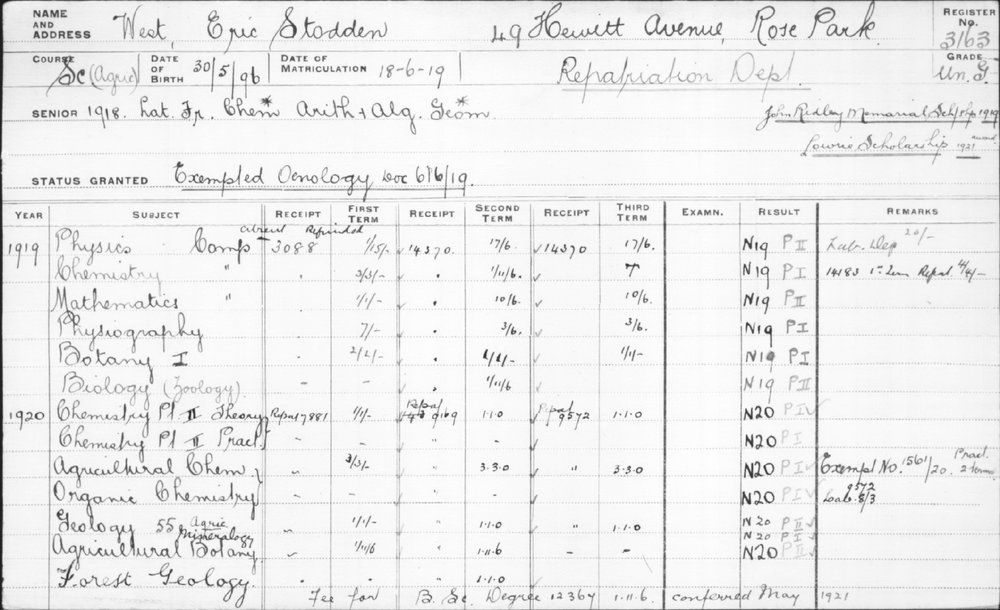 NAME AND ADDRESS West, Eric Stodden 49 Hewitt Avenue, Rose Park. REGISTER No. 3163
COURSE Sc (Agric) DATE OF BIRTH 30/5/96 DATE OF MATRICULATION 18-6-19 Repatriation Dept. GRADE Un. G.
SENIOR 1918. Lat. Fr. Chem* Arith + Alg. Geom* John Ridley Memorial Schlshp 1919
Lowrie Scholarship 1921 award
STATUS GRANTED Exempted Oenology Doc 616/19.
YEAR SUBJECT RECEIPT FIRST TERM RECEIPT SECOND TERM RECEIPT THIRD TERM EXAMN. RESULT REMARKS
Refunded
1919 Physics Comp 3088 1/15/- 14370. 17/6. 14370 17/6. N19 P II Lab. Dep 20/-
Chemistry " 3/3/- 1/11/6. N19 P I 14183 1st Term Repat. 4/4/-
Mathematics " 1/1/- 10/6. 10/6. N19 P II
Physiography 7/- 3/6. 3/6. N19 P I
Botany I 2/2/- 1/1/- N19 P I
Biology (Zoology) - - 1/11/6 N19 P II
1920 Chemistry Pt II Theory Repat 7881 1/1/- Repat 9169 1.1.0 Repat 9572 1.1.0 N20 P IV
Chemistry Pt II Pract. - - " - " - N20 P I
Agricultural Chem 3/3/- " 3.3.0 " 3.3.0 N20 P I Exempt No. 1561/20. Pract. 2 terms
Organic Chemistry N20 P IV 9572 Lab. 8/3
Geology 55 Agric Mineralogy 1/1/- 1.1.0 " 1.1.0 N20 P II
N20 P I
Agricultural Botany 1/11/6 1.11.6 N20 P II
Forest Geology. 1.1.0
Fee for B. Sc. Degree 12367 1.11.6. conferred May 1921